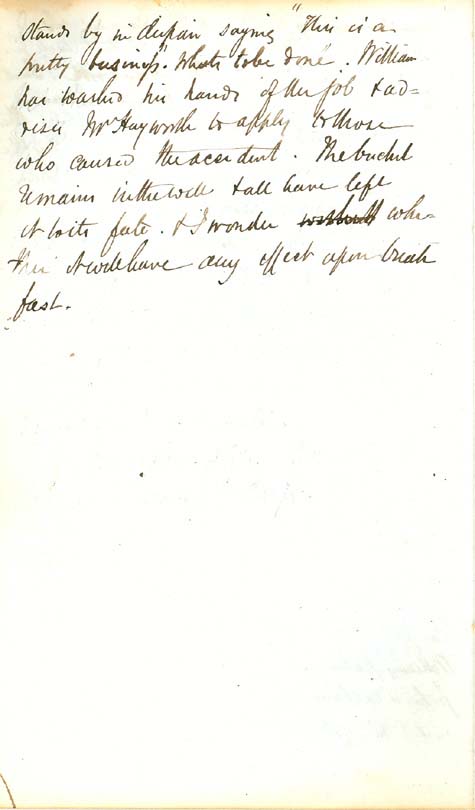 stands by in dispair saying "This is a
pretty business". Whats to be done. William
has washed his hands of the job & ad=
vises Mr Hayworth to apply to those
who caused the accident. The bucket
remains in the well & all have left
it to its fate. & I wonder whe-
ther it will have any effect upon break
fast.